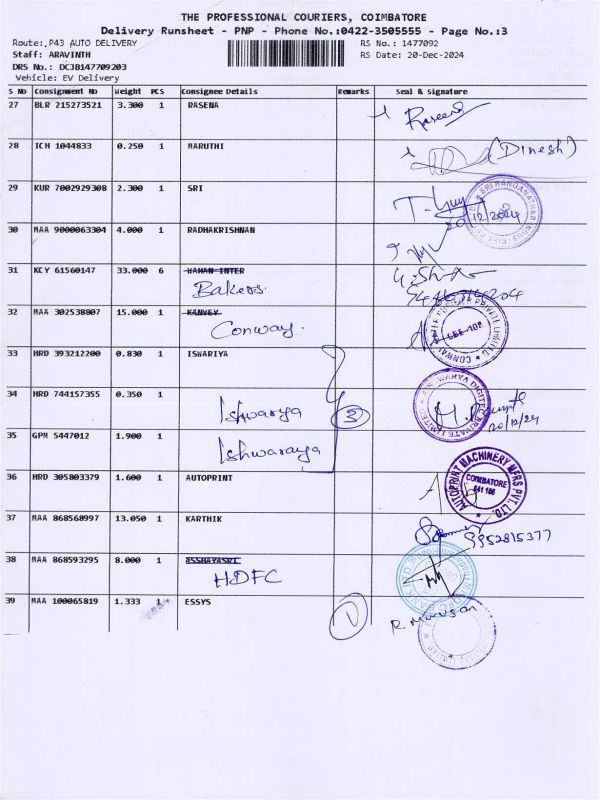 THE PROFESSIONAL COURIERS, COIMBATORE
Delivery Runsheet - PNP - Phone No.:0422-3505555 - Page No.:3
Route:,P43 AUTO DELIVERY
RS No.: 1477092
Staff: ARAVINTH
RS Date: 20-Dec-2024
DRS No.: DCJB147709203
Vehicle: EV Delivery
S No Consignment No Weight PCS Consignee Details Remarks Seal & Signature
27 BLR 215273521 3.300 1 RASENA
Raseena
28 ICH 1044833 0.250 1 MARUTHI
(Dinesh)
29 KUR 7002929308 2.300 1 SRI
20/12/2024
30 MAA 9000063304 4.000 1 RADHAKRISHNAN
31 KCY 61560147 33.000 6 WAHAN INTER
Bakers.
32 MAA 302538807 15.000 1 KANVEY
Conway.
33 HRD 393212200 0.830 1 ISWARIYA
34 HRD 744157355 0.350 1
Ishwarya
3
20/12/24
35 GPM 5447012 1.900 1
Ishwaraya
36 HRD 305803379 1.600 1 AUTOPRINT
AUTOPRINT MACHINERY MFRS PVT. LTD.
COIMBATORE
641 106
37 MAA 868568997 13.050 1 KARTHIK
9952815377
38 MAA 868593295 8.000 1 ASSHAYASRI
HDFC
39 MAA 100065819 1.333 1 ESSYS
1
R Murugan